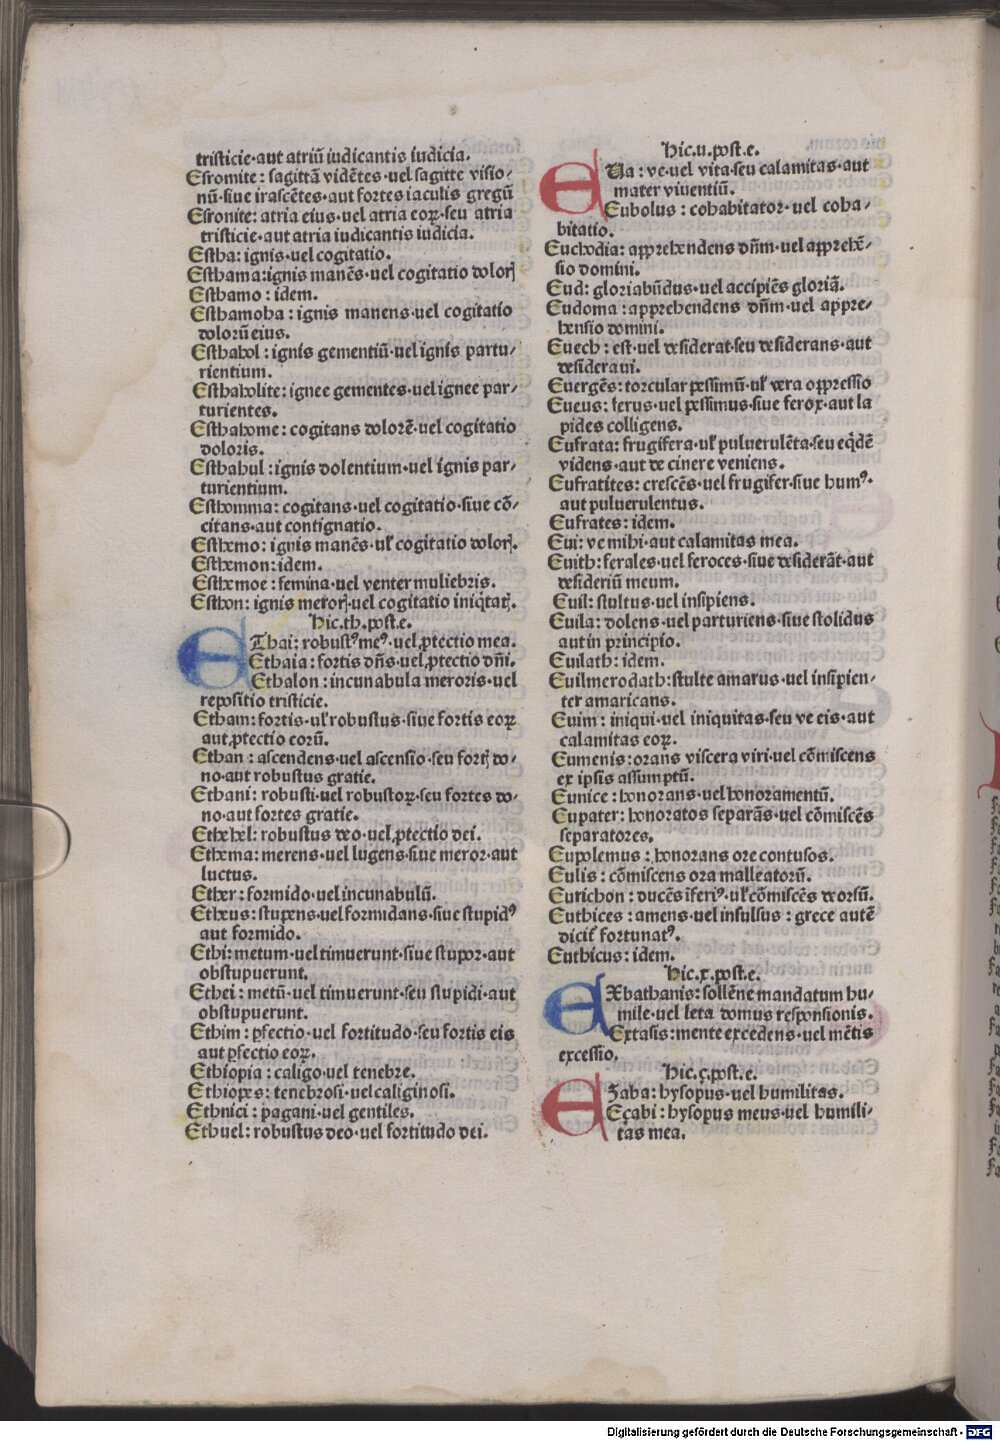 tristicie·aut atriū iudicantis iudicia.
Esromite : sagittā vidētes·vel sagitte visio-
nū·siue irascētes·aut fortes iaculis gregū
Esronite: atria eius·uel atria eoꝝ·seu atria
tristicie·aut atria iudicantis iudicia.
Estha: ignis·vel cogitatio.
Esthama:ignis manēs·vel cogitatio dolorꝭ
Esthamo : idem.
Esthamoha : ignis manens·vel cogitatio
dolorū eius.
Esthahol : ignis gementiū·uel ignis partu-
rientium.
Esthaholite: ignee gementes·vel ignee par-
turientes.
Esthahome: cogitans dolorē·vel cogitatio
doloris.
Esthahul : ignis dolentium·vel ignis par-
turientium.
Esthomma: cogitans·vel cogitatio·siue cō-
citans·aut contignatio.
Esthemo: ignis manēs·uł cogitatio dolorꝭ.
Esthemon: idem.
Esthemoe : femina·vel venter muliebris.
Esthon: ignis merorꝭ·vel cogitatio iniq̄tatꝭ.
Hic.th.post.e.
EThai: robustꝰ meꝰ·vel ꝓtectio mea.
Ethaia: fortis dn̄s·uel ꝓtectio dn̄i.
Ethalon : incunabula meroris·uel
repositio tristicie.
Etham: fortis·uł robustus·siue fortis eoꝝ
aut ꝓtectio eorū.
Ethan : ascendens·uel ascensio·seu fortꝭ do-
no·aut robustus gratie.
Ethani: robusti·uel robustoꝝ·seu fortes do-
no·aut fortes gratie.
Ethehel: robustus deo·uel ꝓtectio dei.
Ethema: merens·vel lugens·siue meror·aut
luctus.
Ether: formido·vel incunabulū.
Etheus: stupens·vel formidans·siue stupidꝰ
aut formido.
Ethi: metum·uel timuerunt·siue stupor·aut
obstupuerunt.
Ethei: metū·uel timuerunt·seu stupidi·aut
obstupuerunt.
Ethim : ꝑfectio·vel fortitudo·seu fortis eis
aut ꝑfectio eoꝝ.
Ethiopia: caligo·vel tenebre.
Ethiopes: tenebrosi·uel caliginosi.
Ethnici : pagani·vel gentiles.
Ethuel: robustus deo·vel fortitudo dei.
Hic.u.post.e.
EUa : ve·uel vita·seu calamitas·aut
mater viuentiū.
Eubolus : cohabitator·uel coha-
bitatio.
Euchodia: apprehendens dn̄m·uel apprehē-
sio domini.
Eud: gloriabūdus·vel accipiēs gloriā.
Eudoma : apprehendens dn̄m·uel appre-
hensio domini.
Euech : est·vel desiderat·seu desiderans·aut
desideraui.
Euergēs: torcular pessimū·uł vera oppressio
Eueus: ferus·vel pessimus·siue ferox·aut la
pides colligens.
Eufrata: frugifera·uł puluerulēta·seu eq̄dē
videns·aut de cinere veniens.
Eufratites: crescēs·vel frugifer·siue humꝰ·
aut puluerulentus.
Eufrates: idem.
Eui: ve mihi·aut calamitas mea.
Euith: ferales·vel feroces·siue desiderāt·aut
desideriū meum.
Euil: stultus·vel insipiens.
Euila: dolens·vel parturiens·siue stolidus
aut in principio.
Euilath: idem.
Euilmerodath:stulte amarus·vel insipien-
ter amaricans.
Euim: iniqui·vel iniquitas·seu ve eis·aut
calamitas eoꝝ.
Eumenis: orans viscera viri·vel cōmiscens
ex ipsis assumptū.
Eunice : honorans·uel honoramentū.
Eupater: honoratos separās·vel cōmiscēs
separatores.
Eupolemus : honorans ore contusos.
Eulis: cōmiscens ora malleatorū.
Eurichon : ducēs īferiꝰ·uł cōmiscēs deorsū.
Euthices: amens·vel insulsus : grece autē
dicit fortunatꝰ.
Euthicus: idem.
Hic.x.post.e.
EXbathanis: sollēne mandatum hu-
mile·vel leta domus responsionis.
Extasis: mente excedens·vel mētis
excessio.
Hic.ç.post.e.
EZaba: hysopus·vel humilitas.
Eçabi: hysopus meus·vel humili-
tas mea.
Digitalisierung gefördert durch die Deutsche Forschungsgemeinschaft - DFG